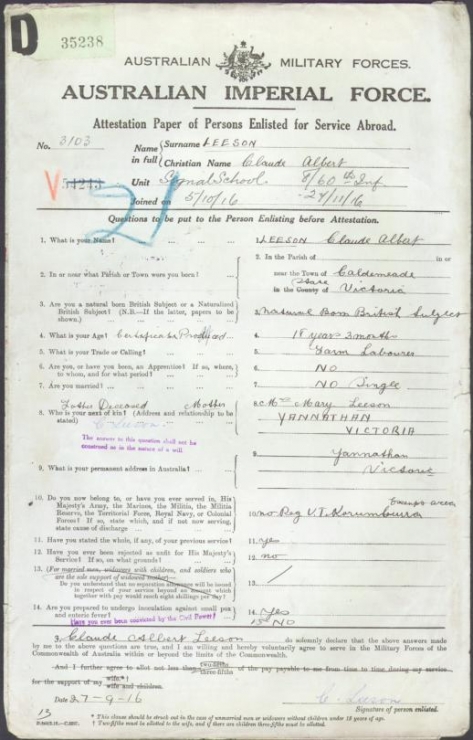 D
35238
AUSTRALIAN MILITARY FORCES.
AUSTRALIAN IMPERIAL FORCE.
Attestation Paper of Persons Enlisted for Service Abroad.
No. 3103 Name in full { Surname LEESON
Christian Name Claude Albert
V 54243 21 Unit Signal School 8/60 th Inf
Joined on 5/10/16 24/11/16
Questions to be put to the Person Enlisting before Attestation.
1. What is your Name? ... ... ... 1. LEESON Claude Albert
2. In or near what Parish or Town were you born? ... 2. In the Parish of in or
near the Town of Caldermeade
State
in the County of Victoria
3. Are you a natural born British Subject or a Naturalized
British Subject? (N.B.—If the latter, papers to be
shown.) 3. Natural Born British Subject
4. What is your Age? Certificate Produced 4. 18 years 3 months
5. What is your Trade or Calling? 5. Farm Labourer
6. Are you, or have you been, an Apprentice? If so, where,
to whom, and for what period? 6. NO
7. Are you married? 7. NO Single
Father Deceased Mother
8. Who is your next of kin? (Address and relationship to be
stated) C Leeson
8. Mrs Mary Leeson
YANNATHAN
VICTORIA
The answer to this question shall not be
construed as in the nature of a will
9. What is your permanent address in Australia? 9. Yannathan
Victoria
10. Do you now belong to, or have you ever served in, His
Majesty's Army, the Marines, the Militia, the Militia
Reserve, the Territorial Force, Royal Navy, or Colonial
Forces? If so, state which, and if not now serving,
state cause of discharge
Exempt area
10. no Reg V.T. Korumburra
11. Have you stated the whole, if any, of your previous service? 11. yes
12. Have you ever been rejected as unfit for His Majesty's
Service? If so, on what grounds? 12. no
13. (For married men, widowers with children, and soldiers who
are the sole support of widowed mother)—
Do you understand that no separation allowance will be issued
in respect of your service beyond an amount which
together with pay would reach eight shillings per day? 13. /
14. Are you prepared to undergo inoculation against small pox
and enteric fever? 14. Yes
Have you ever been convicted by the Civil Power? 15. NO
I, Claude Albert Leeson do solemnly declare that the above answers made
by me to the above questions are true, and I am willing and hereby voluntarily agree to serve in the Military Forces of the
Commonwealth of Australia within or beyond the limits of the Commonwealth.
*And I further agree to allot not less than two-fifths
three-fifths of the pay payable to me from time to time during my service
for the support of my wife.†
wife and children.
Date 27-9-16
C. Leeson
Signature of person enlisted.
13
* This clause should be struck out in the case of unmarried men or widowers without children under 18 years of age.
† Two-fifths must be allotted to the wife, and if there are children three-fifths must be allotted.